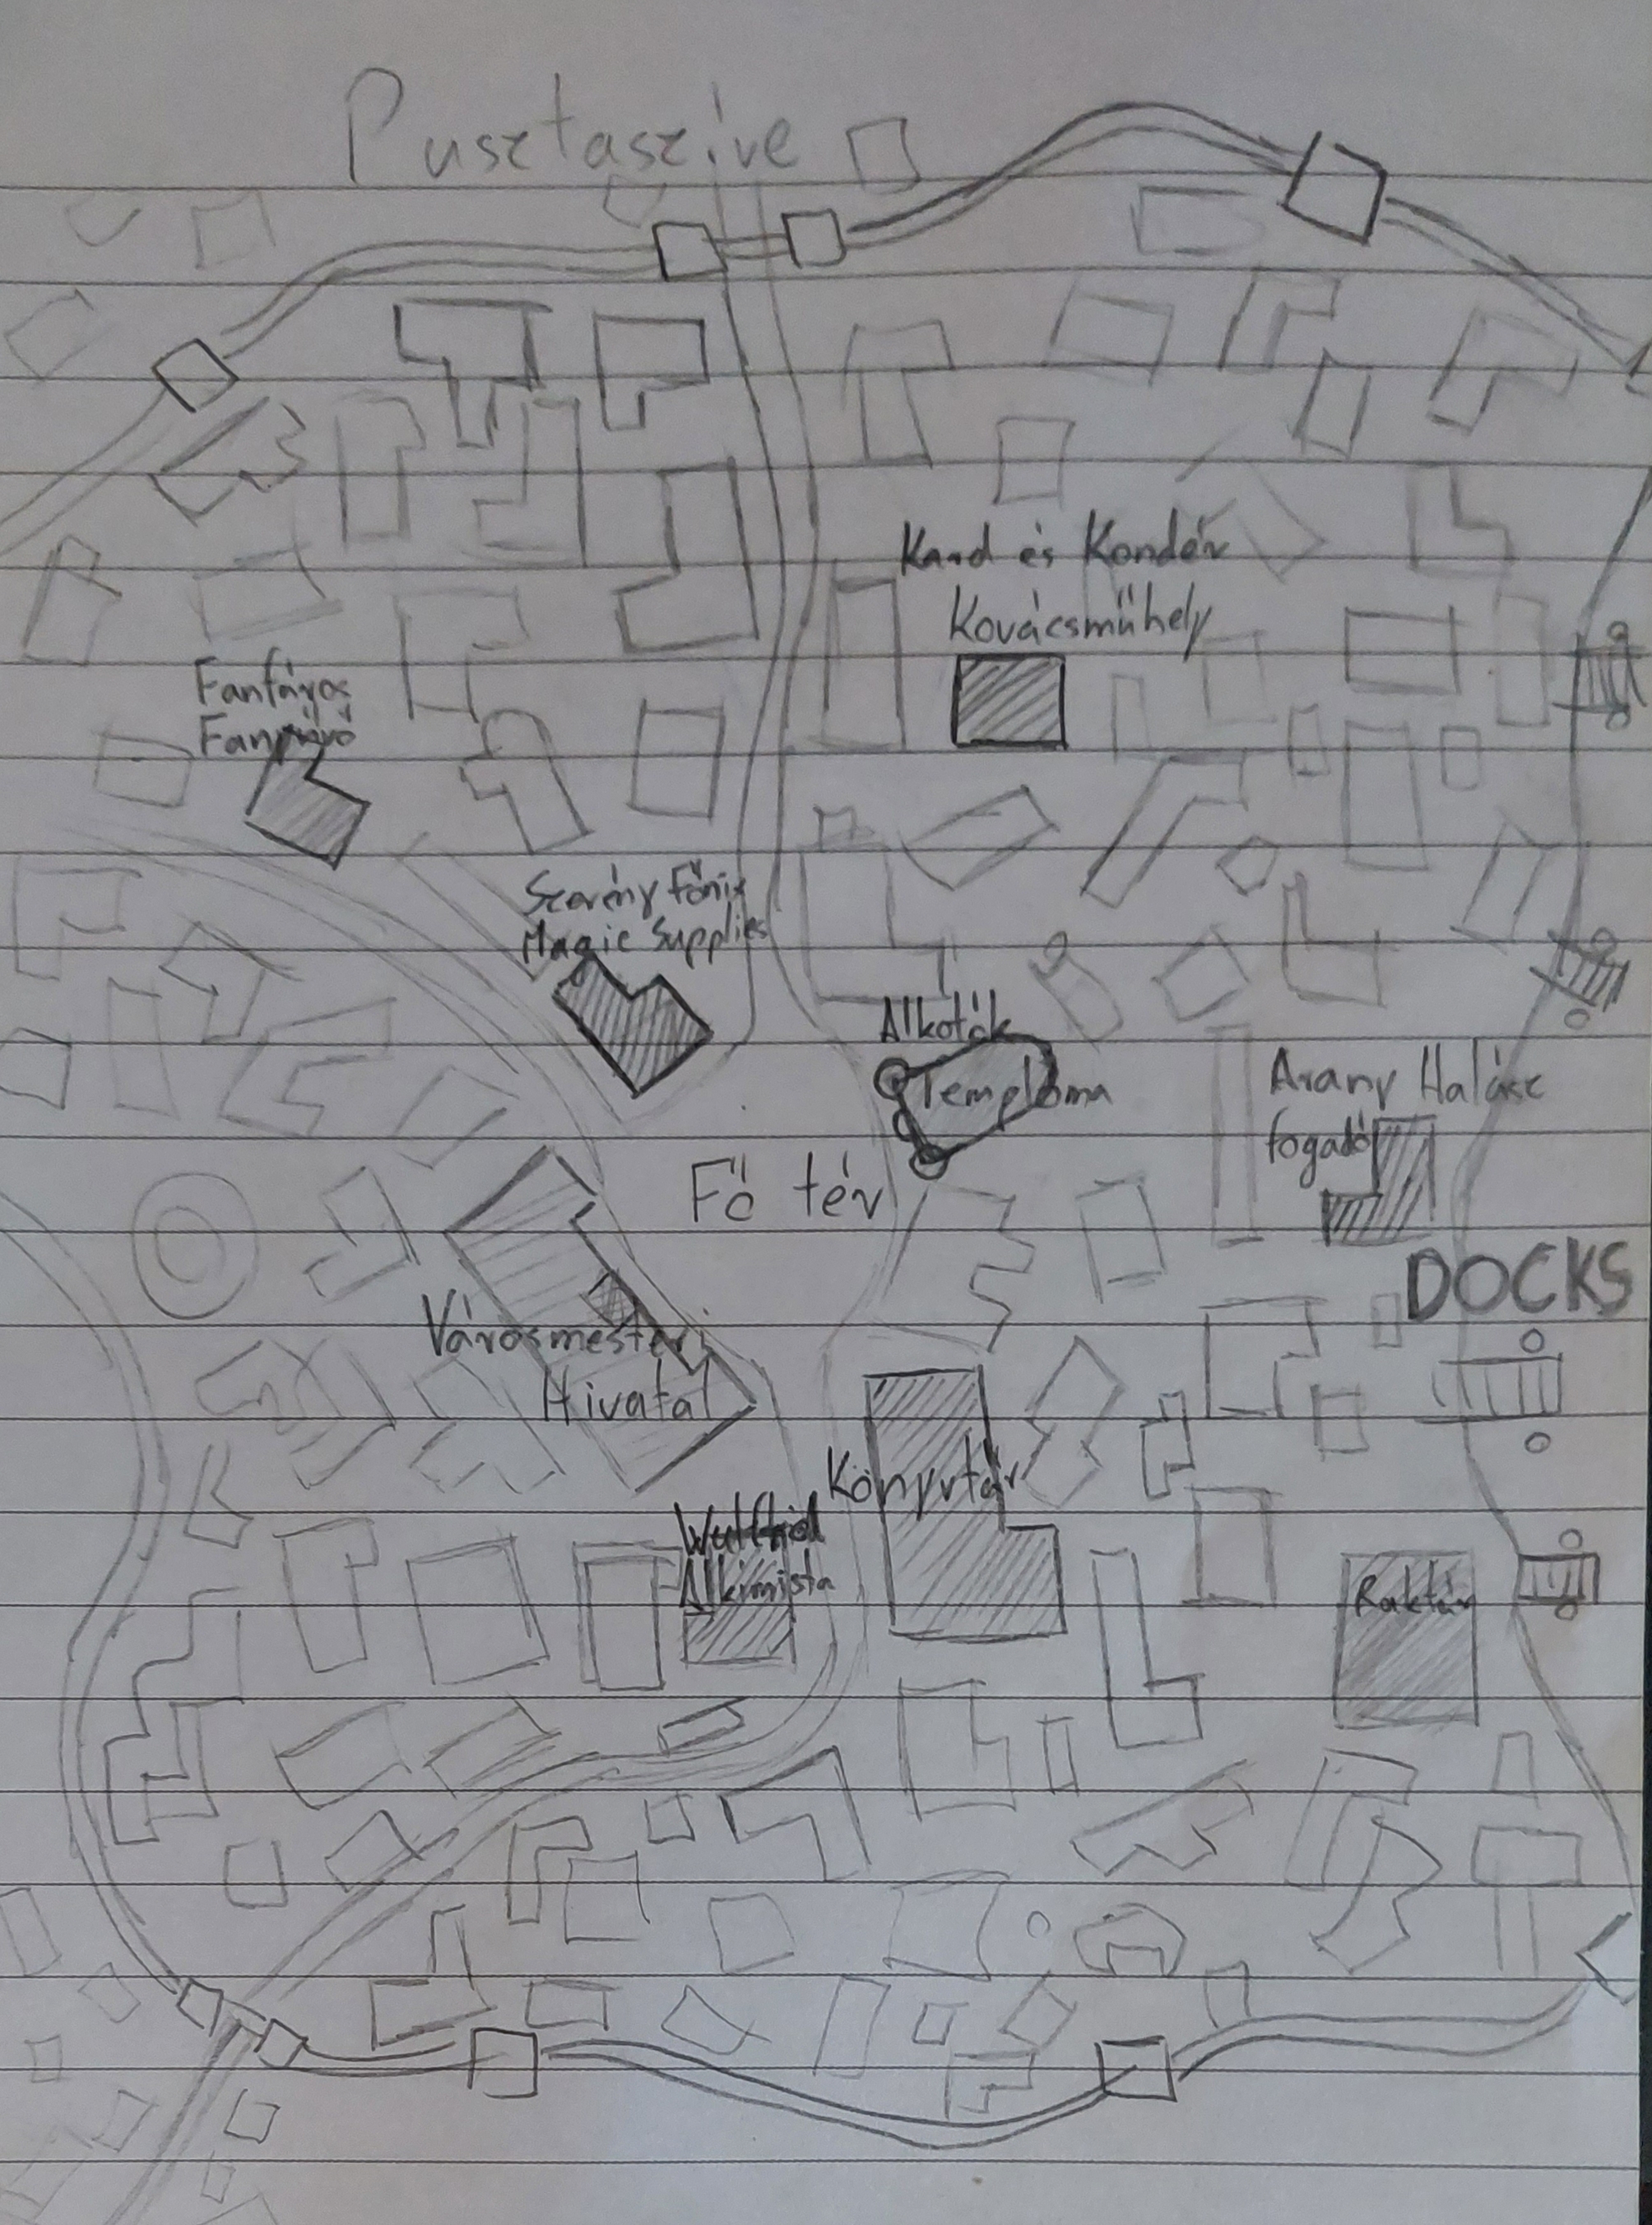 Pusztaszive
Kard és Kondér
Kovácsműhely
Fanfáros
Szerény Főnix
Magic Supplies
Alkotók
Temploma
Arany Halász
fogadó
Fő tér
DOCKS
Városmesteri
Hivatal
Könyvtár
Alkimista
Raktár